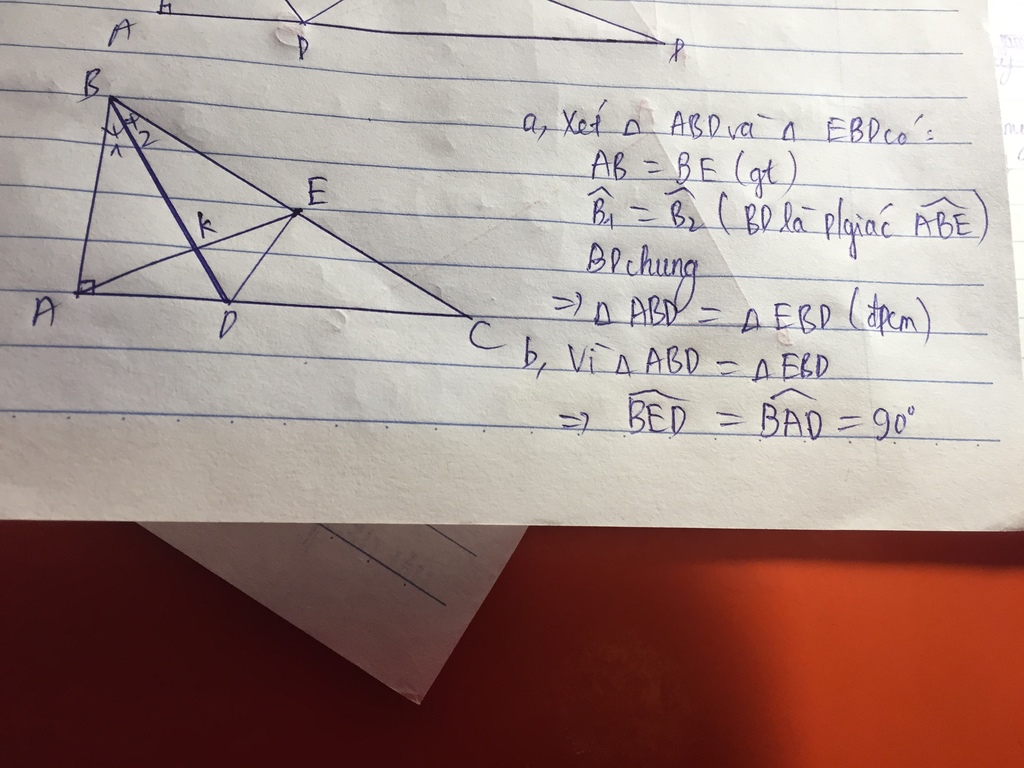 A
D
P
B
1 2
E
K
A
D
C
a, Xét Δ ABD và Δ EBD có:
AB = BE (gt)
B̂1 = B̂2 (BD là p/giác ABE)
BD chung
=> Δ ABD = Δ EBD (đpcm)
b, Vì Δ ABD = Δ EBD
=> BED = BAD = 90°